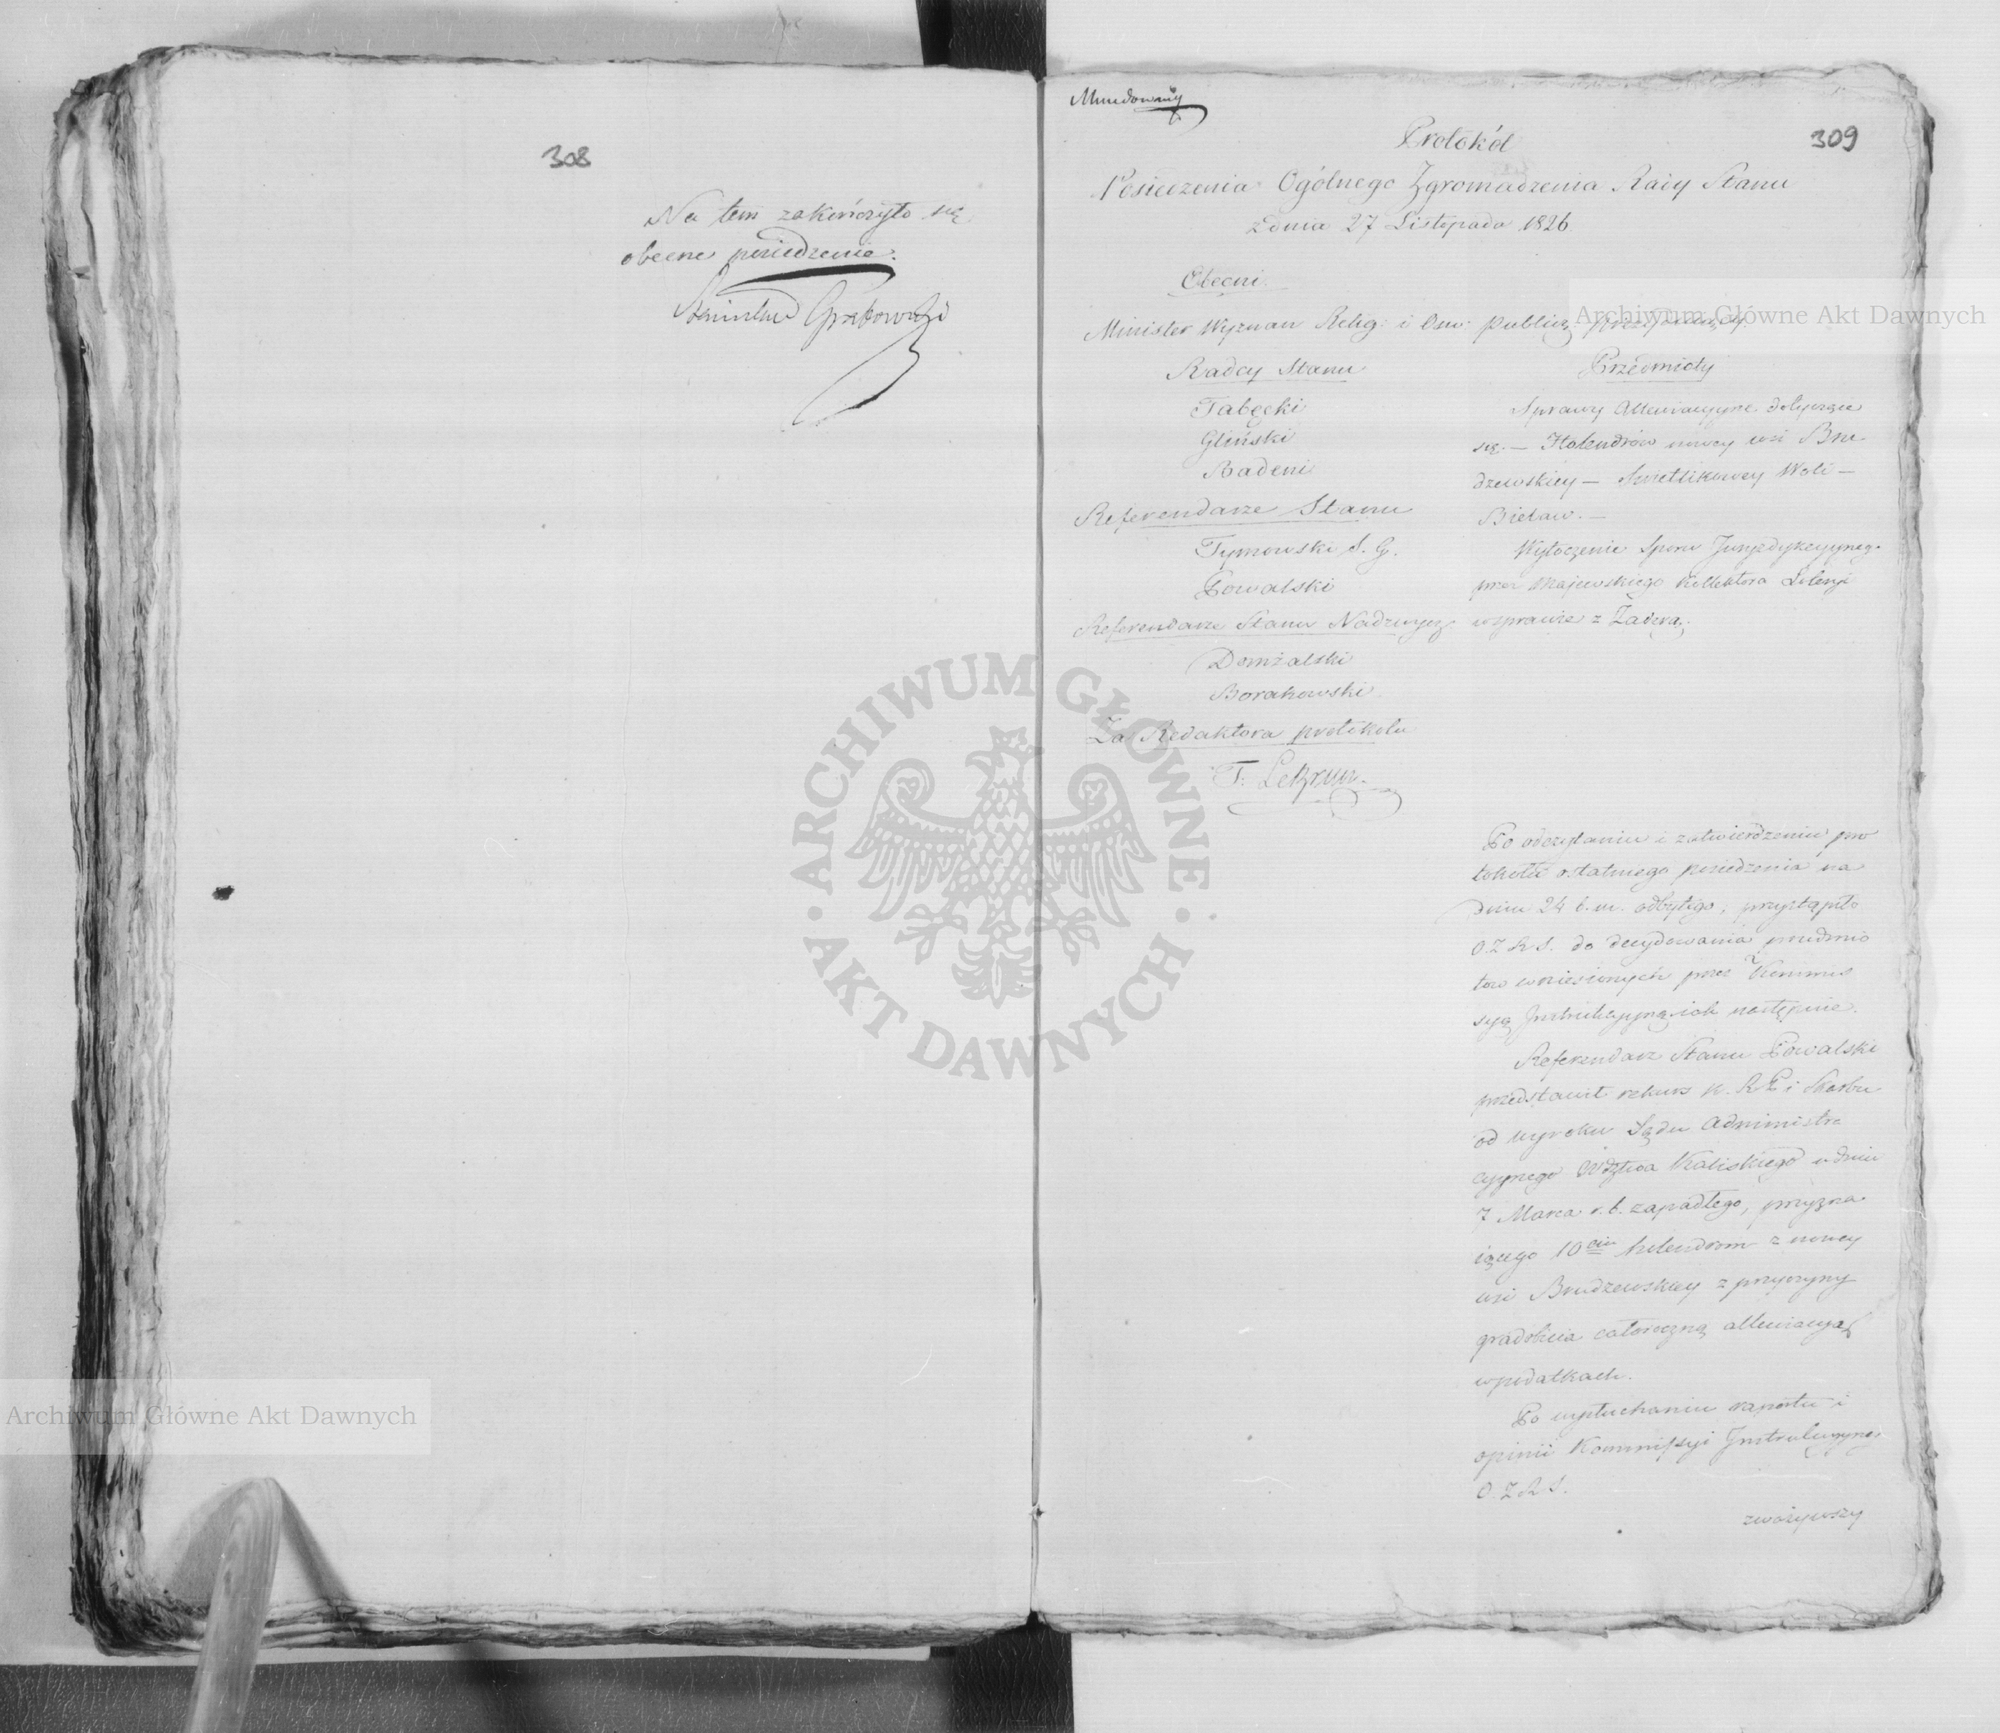 308
Na tem zakończyło się
obecne posiedzenie.
Stanisław Grabowski
Mundowany
309
Protokół
Posiedzenia Ogólnego Zgromadzenia Rady Stanu
z dnia 27 Listopada 1826
Obecni.
Minister Wyznan Relig: i Osw: Public: prezyduiący.
Radcy Stanu
Tabęcki
Gliński
Badeni
Referendarze Stanu
Tymowski S. G.
Powalski
Referendarze Stanu Nadzwycz
Domżalski
Borakowski
Za Redaktora protokołu
T. LeBrun.
Przedmioty
Sprawy Allewiacyyne dotyczące
się. — Holendrów nowey wsi Bru
dzewskiey — Swietlikowey Woli —
Bielaw. —
Wytoczenie Sporu Juryzdykcyyneg.
przez Majewskiego Kollektora Loteryi
w sprawie z Zaderą.
Po odczytaniu i zatwierdzeniu pro
tokołu ostatniego posiedzenia na
dniu 24 b. m. odbytego, przystąpiło
O. Z. R. S. do decydowania przedmio
tow wniesionych przez Kommis
syą Instrukcyyną iak następuie.
Referendarz Stanu Powalski
przedstawił rekurs K. R. P. i Skarbu
od wyroku Sądu Administra
cyynego Wdztwa Kaliskiego w dniu
7 Marca r. b. zapadłego, przyzna
iącego 10ciu holendrom z nowey
wsi Brudzewskiey z przyczyny
gradobicia całoroczną allewiacyą
w podatkach.
Po wysłuchaniu raportu i
opinii Kommissyi Instrukcyyney
O. Z. R. S.
zwazywszy
Archiwum Główne Akt Dawnych
Archiwum Główne Akt Dawnych
ARCHIWUM GŁÓWNE
· AKT DAWNYCH ·